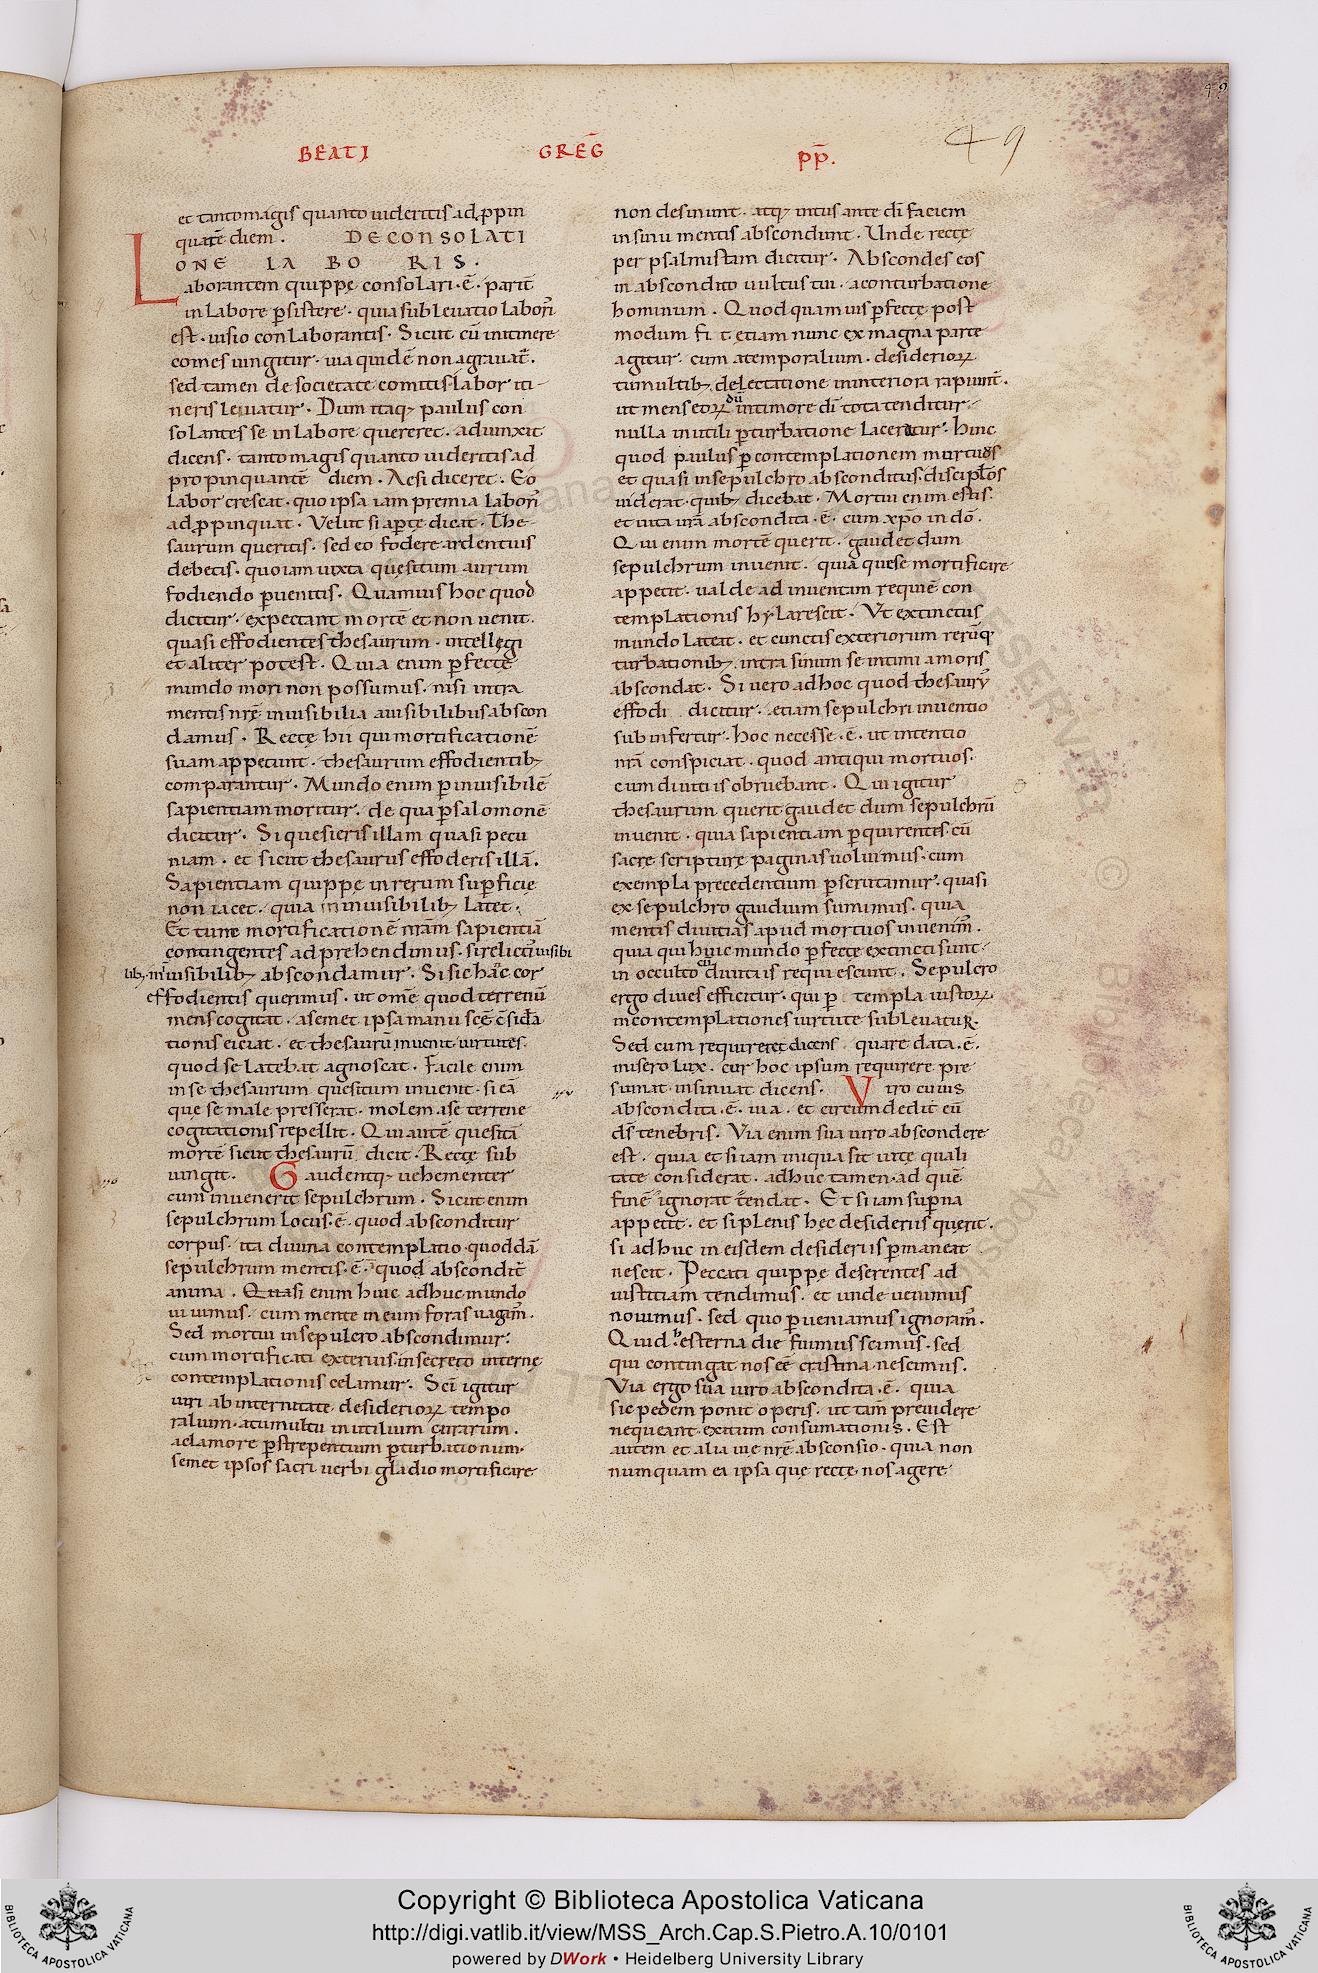 49
BEATI GREḠ PP̄.
49
et tantomagis quanto uideritis adppin
quatē diem . DECONSOLATI
ONE LA BO RIS .
Laborantem quippe consolari .ē. pariť
inlabore psistere . quia subleuatio laboris
est . uisio conlaborantis . Sicut cū initinere
comes iungitur . uia quidē non agrauať .
sed tamen de societate comitis labor iti-
neris leuatur . Dum itaq; paulus con
solantes se inlabore quereret . adiunxit
dicens . tantomagis quanto uideritis ad
propinquantē diem . Acsi diceret . Eo
labor crescat . quo ipsa iam premia laboris
adppinquat . Velut si apte dicat . The-
saurum queritis . sed eo fodere ardentius
debetis . quoiam iuxta quesitum aurum
fodiendo puenitis . Quamuis hoc quod
dicitur . expectant mortē et non uenit .
quasi effodientes thesaurum . intellegi
et aliter potest . Quia enim pfecte
mundo mori non possumus . nisi intra
mentis nrę inuisibilia auisibilibus abscon
damus . Recte hii qui mortificationē
suam appetunt . thesaurum effodientib;
comparantur . Mundo enim p inuisibilē
sapientiam moritur . de qua p salomonē
dicitur . Si quesieris illam quasi pecu
niam . et sicut thesaurus effoderis illā .
Sapientiam quippe in rerum superficie
non iacet . quia in inuisibilib; latet .
Et tunc mortificationē nram sapientiā
contingentes adprehendimus . si relictis uisibi
lib; in inuisibilib; abscondamur . Si sic hac cor
effodientis querimus . ut omē quod terrenū
mens cogitat . asemet ipsa manu scę c̄sidā
tionis eiciat . et thesaurū inuenit uirtutes .
quod se latebat agnoscat . Facile enim
in se thesaurum quesitum inuenit . si eā
que se male presserat . molem a se terrene
cogitationis repellit . Qui autē quesitā
mortē sicut thesaurū dicit . Recte sub
iungit . Gaudentq; uehementer
cum inuenerit sepulchrum . Sicut enim
sepulchrum locus .ē. quod absconditur
corpus . ita diuina contemplatio . quoddā
sepulchrum mentis .ē. quod absconditē
anima . Quasi enim huic adhuc mundo
uiuimus . cum mente in eum foras uagim̄ .
Sed mortui in sepulcro abscondimur .
cum mortificati exterius . in secreto interne
contemplationis celamur . Sci igitur
uiri ab internitate desiderior; tempo
ralium . atumultu inutilium curarum .
aclamore pstrepentium pturbationum .
semet ipsos sacri uerbi gladio mortificare
non desinunt . atq; intus ante di faciem
insinu mentis abscondunt . Unde recte
per psalmistam dicitur . Abscondes eos
in abscondito uultus tui . aconturbatione
hominum . Quod quamuis pfecte post
modum fi t etiam nunc ex magna parte
agitur . cum atemporalium . desiderior;
tumultib; delectatione in interiora rapiunt .
ut mens eor; dū intimore di tota tenditur .
nulla inutili pturbatione laceratur . Hinc
quod paulus p contemplationem mortuos
et quasi insepulchro absconditus . discipulos
uiderat . quib; dicebat . Mortui enim estis .
et uita ura abscondita .ē. cum xpo in do .
Qui enim mortē querit . gaudet dum
sepulchrum inuenit . quia qui se mortificare
appetit . ualde ad inuentam requiē con
templationis hylarescit . Vt extinctus
mundo lateat . et cunctis exteriorum rerūq
turbationib; intra sinum se intimi amoris
abscondat . Si uero adhoc quod thesaurus
effodi dicitur . etiam sepulchri inuentio
subinfertur . hoc necesse .ē. ut intentio
nra conspiciat . quod antiqui mortuos .
cum diuitiis obruebant . Qui igitur
thesaurum querit gaudet dum sepulchrū
inuenit . quia sapientiam pquirentes . cū
sacre scripture paginas uoluimus . cum
exempla precedentium pscrutamur . quasi
ex sepulchro gaudium sumimus . quia
mentis diuitias apud mortuos inuenim̄ .
quia qui huic mundo pfecte extincti sunt .
in occulto cū diuitiis requiescunt . Sepulcro
ergo diues efficitur . qui p templa iustor;
in contemplationes uirtute subleuatur .
Sed cum requireret dicens quare data .ē.
misero lux . cur hoc ipsum requirere pre
sumat . insinuat dicens . Viro cuius
abscondita .ē. uia . et circumdedit eū
ds tenebris . Via enim sua uiro abscondere
est . quia et si iam in iqua sit uite quali
tate considerat . adhuc tamen . ad quē
finē ignorat tendat . Et si iam supna
appetit . et si plenis hec desideriis querit .
si adhuc in eisdem desideriis pmaneat
nescit . Peccati quippe deserentes ad
iustitiam tendimus . et unde uenimus
nouimus . sed quo pueniamus ignoram̄ .
Quid hesterna die fuimus scimus . sed
qui contingat nos eē crastina nescimus .
Via ergo sua uiro abscondita .ē. quia
sic pedem ponit operis . ut tam preuidere
nequeant exitum consumationis . Est
autem et alia uie nrę absconsio . quia non
numquam ea ipsa que recte nos agere
Copyright © Biblioteca Apostolica Vaticana
http://digi.vatlib.it/view/MSS_Arch.Cap.S.Pietro.A.10/0101
powered by DWork • Heidelberg University Library
BIBLIOTECA APOSTOLICA VATICANA
BIBLIOTECA APOSTOLICA VATICANA